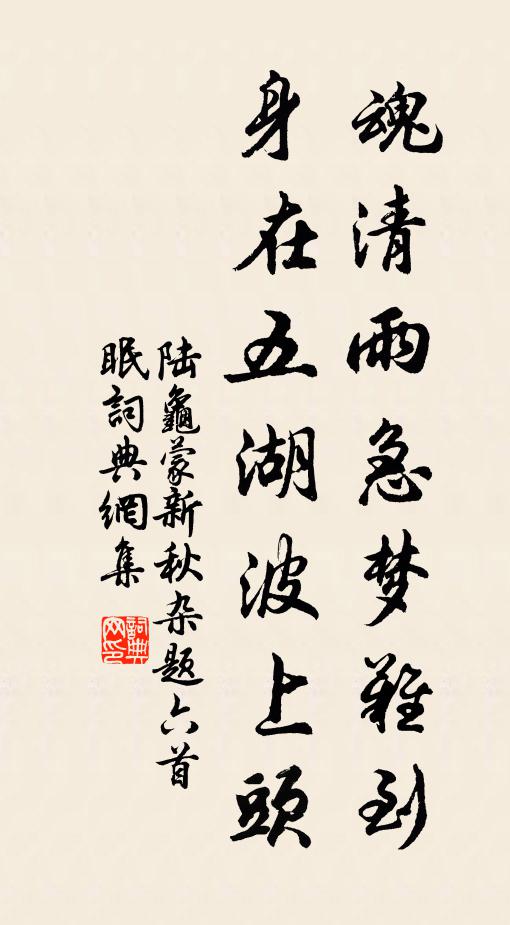 魂清雨急梦難到
身在五湖波上頭
陆龜蒙新秋杂题六首
眠詞典網集
詞典
网印